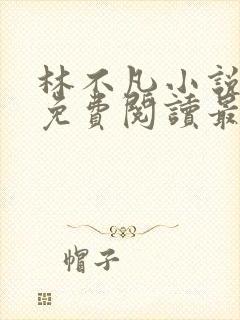 林不凡小說
免費閱讀最
帽子